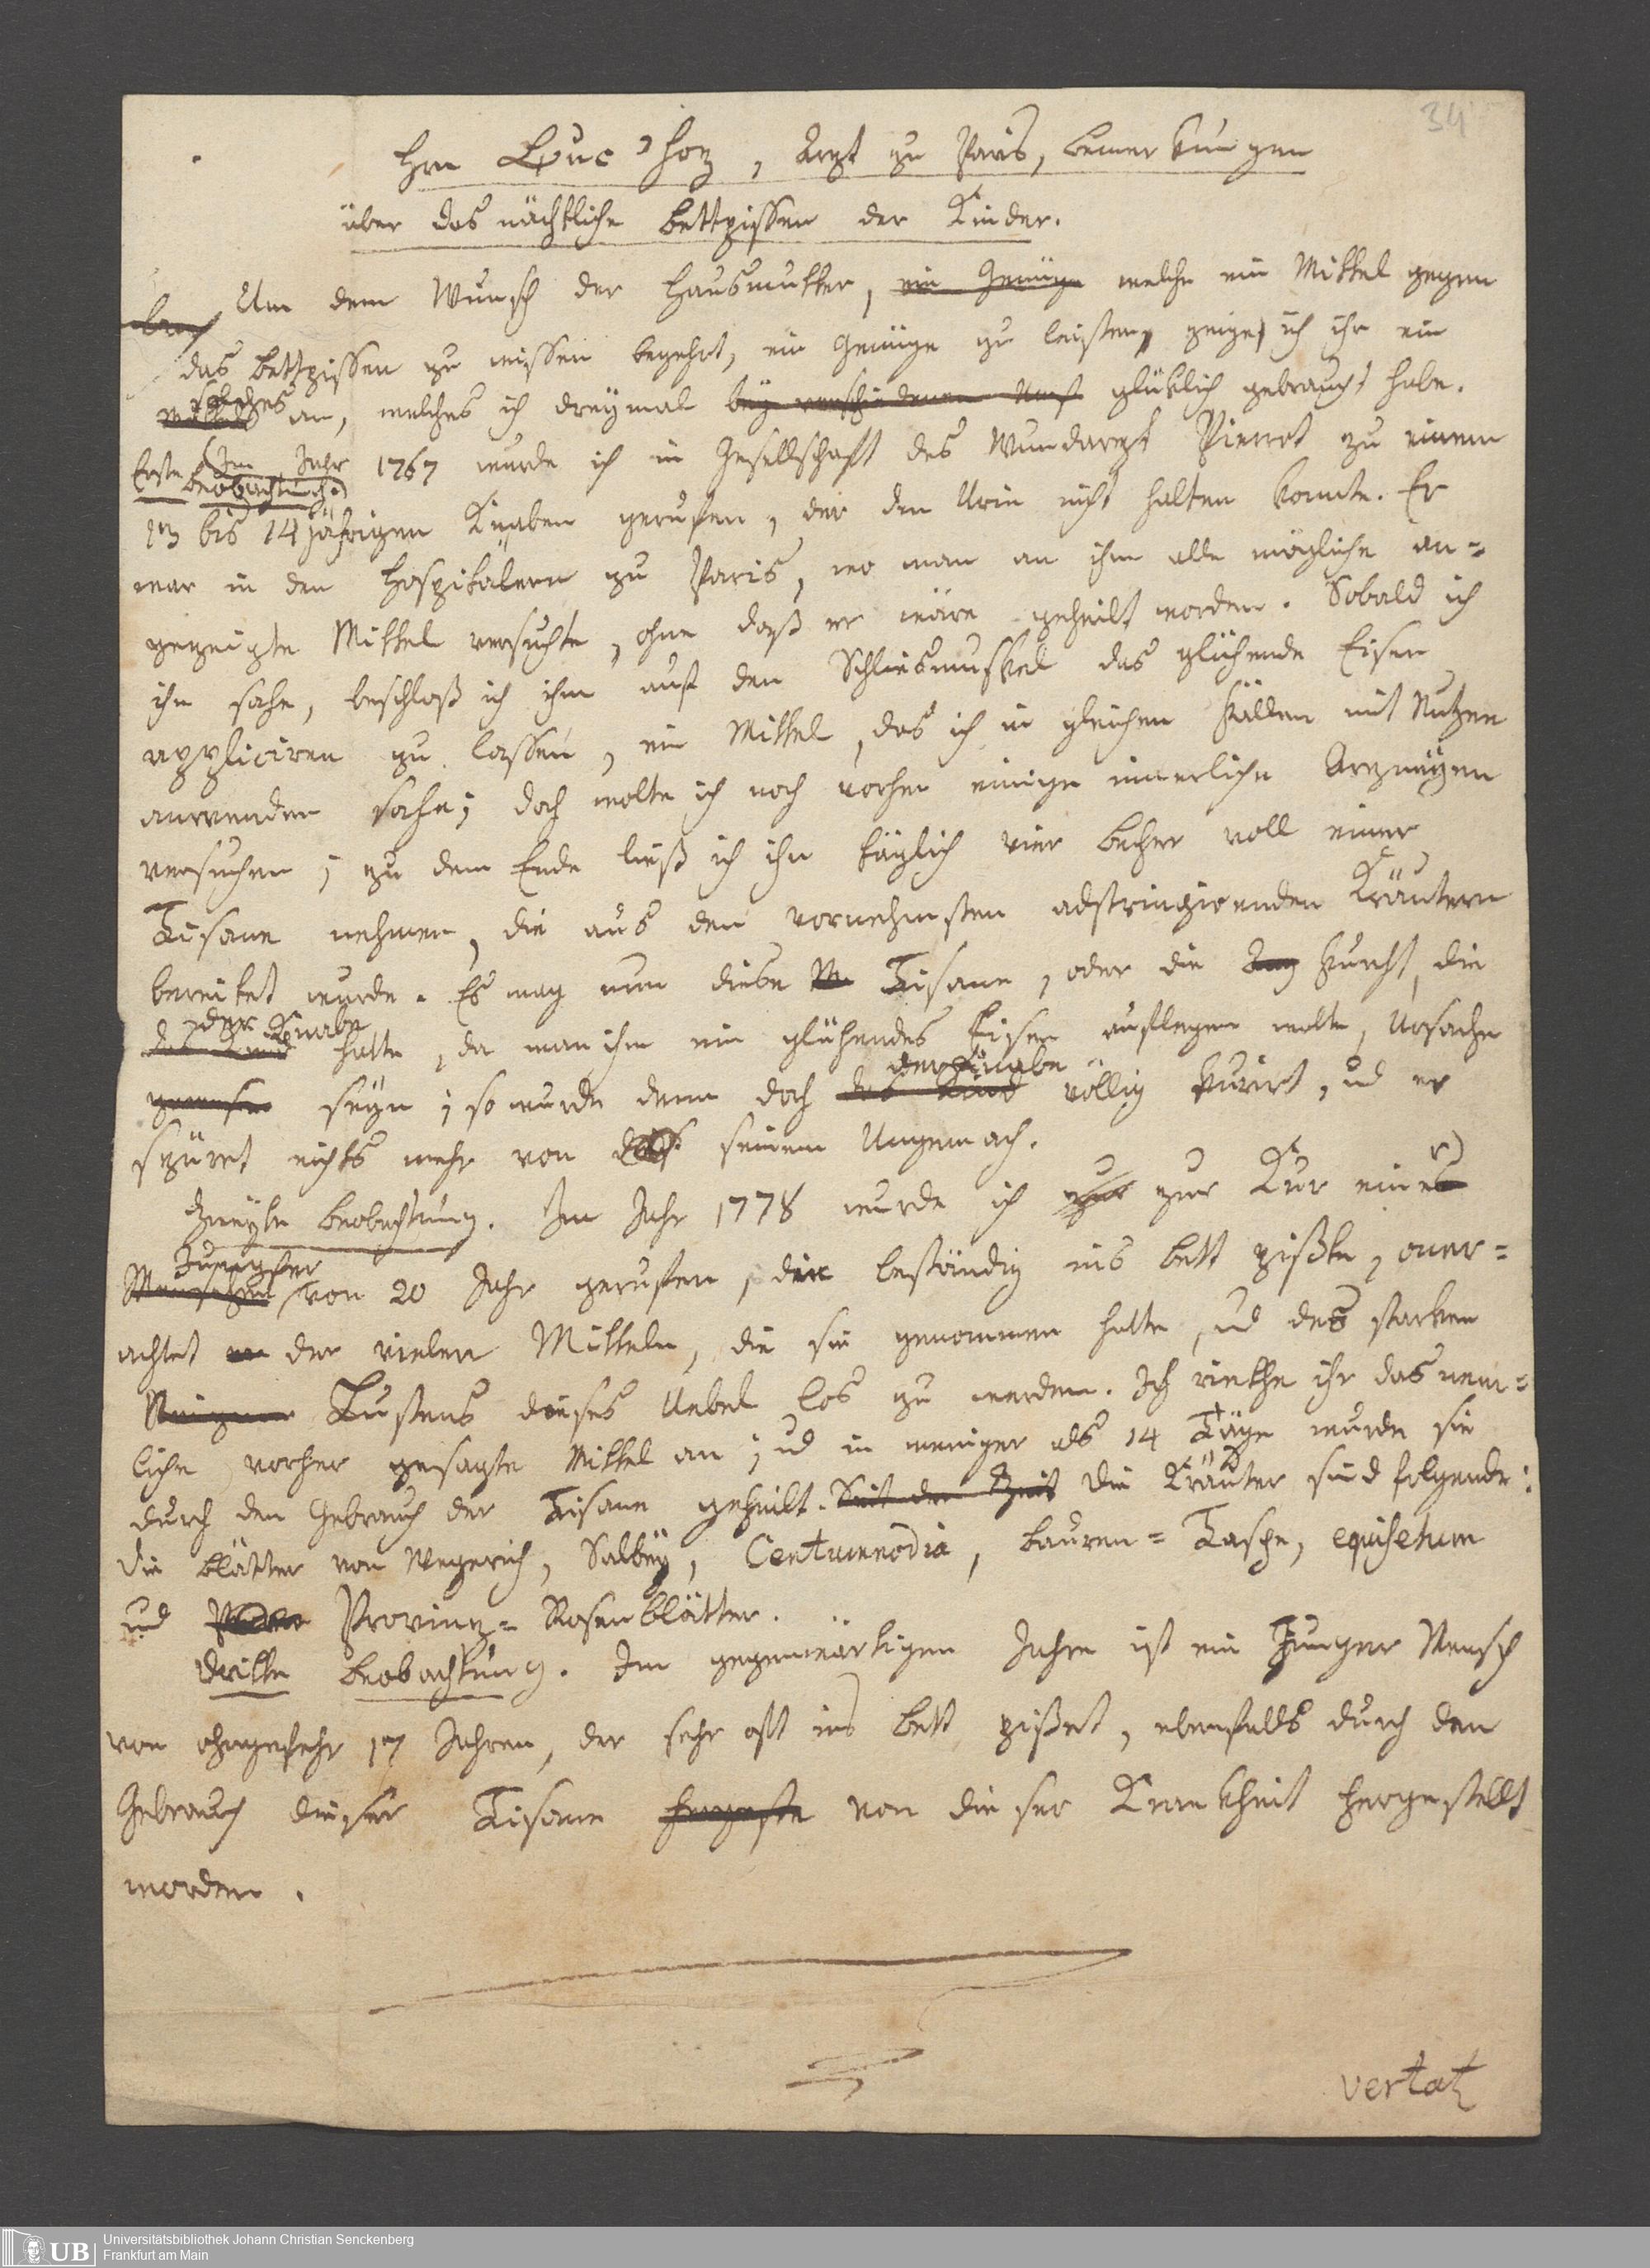 34
Hrn Luc Hoz, Arzt zu Paris, Bemerkungen
über das nächtliche Bettpissen der Kinder.
Um dem Wunsch der Hausmutter, ein Genüge welche ein Mittel gegen
das Bettpissen zu wissen begehrt, ein Genüge zu leisten, zeige ich ihr ein
solches
Mittel an, welches ich dreymal bey verschiedenen glüklich gebraucht habe.
Erste Beobachtung.
(Im Jahr 1767 wurde ich in Gesellschaft des Wundarzt Pierrot zu einem
13 bis 14 jährigen Knaben gerufen, der den Urin nicht halten konnte. Er
war in den Hospitälern zu Paris, wo man an ihm alle mögliche an=
gezeigte Mittel versuchte, ohne daß er wäre geheilt worden. Sobald ich
ihn sahe, beschloß ich ihm auf den Schliesmuskel das glühende Eisen
appliciren zu lassen, ein Mittel, das ich in gleichen Fällen mit Nutzen
anwenden sahe; doch wolte ich noch vorher einige innerliche Arzneyen
versuchen; zu dem Ende ließ ich ihn täglich vier Becher voll einer
Tisane nehmen, die aus den vornehmsten adstringirenden Kräutern
bereitet wurde. Es mag nun diese Tisane, oder die Furcht, die
der Knabe
das Kind hatte, da man ihm ein glühendes Eisen auflegen wolte, Ursache
der Knabe
gewesen seyn; so wurde denn doch das Kind völlig kurirt, ud er
spüret nichts mehr von seinem Ungemach.
Zweyte Beobachtung. Im Jahr 1778 wurde ich zur zur Kur eines
r)
Jungfer
Menschen von 20 Jahr gerufen, die beständig ins Bett pißte, oner=
achtet der vielen Mitteln, die sie genommen hatte, ud des starken
Lustens dieses Uebel los zu werden. Ich riethe ihr das nem=
liche vorher gesagte Mittel an; ud in weniger als 14 Tägen wurde sie
durch den Gebrauch der Tisane geheilt. Seit der Zeit Die Kräuter sind folgende:
die Blätter von Wegerich, Salbey, Centumnodia, Bauren=Tasche, equisetum
ud Provinz=Rosenblätter.
Dritte Beobachtung. Im gegenwärtigen Jahre ist ein Junger Mensch
von ohngefehr 17 Jahren, der sehr oft ins Bett pißet, ebenfalls durch den
Gebrauch dieser Tisane hergeste von dieser Krankheit hergestellt
worden.
vertat
UB Universitätsbibliothek Johann Christian Senckenberg
Frankfurt am Main